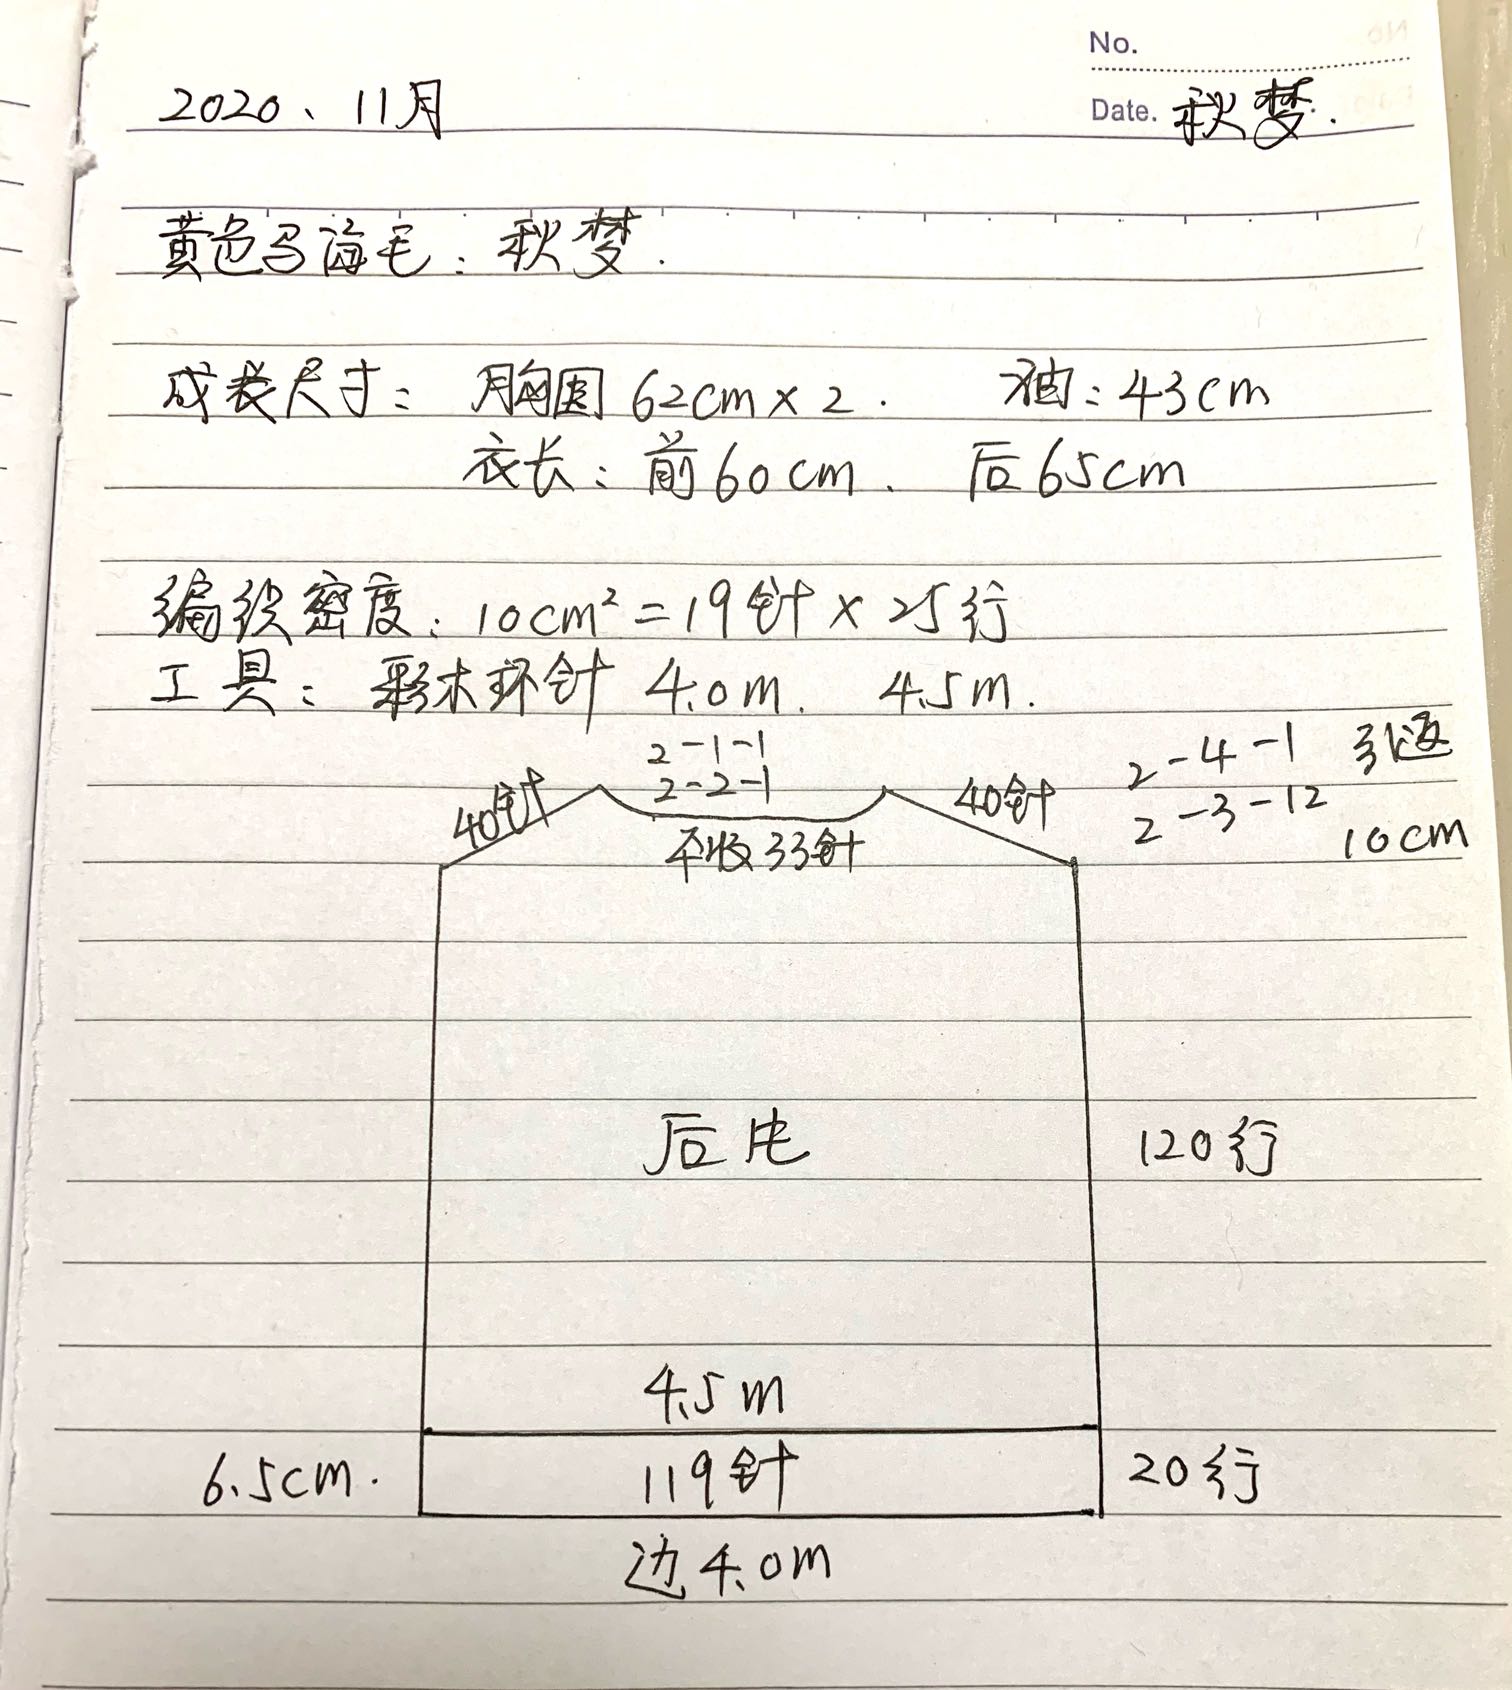 No.
2020、11月
Date. 秋梦.
黄色马海毛：秋梦.
成衣尺寸：胸围62cm×2. 袖：43cm
衣长：前60cm. 后65cm
编织密度：10cm²=19针×25行
工具：彩木环针 4.0m. 4.5m.
2-1-1
2-2-1
40针
平收33针
40针
2-4-1 引返
2-3-12
10cm
后片
120行
4.5m
6.5cm.
119针
20行
边4.0m